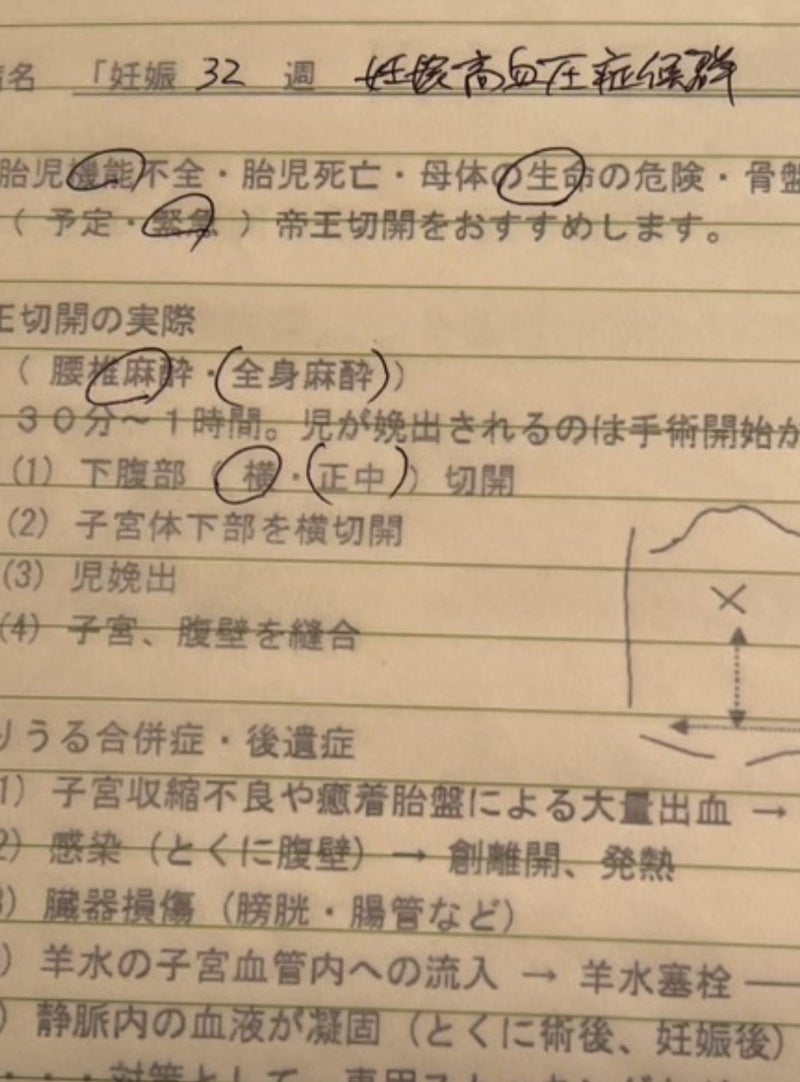 名 「妊娠 32 週 妊娠高血圧症候群
胎児機能不全・胎児死亡・母体の生命の危険・骨盤
（ 予定・緊急 ）帝王切開をおすすめします。
王切開の実際
（ 腰椎麻酔・(全身麻酔)）
３０分～１時間。児が娩出されるのは手術開始か
(1) 下腹部（ 横・(正中)）切開
(2) 子宮体下部を横切開
(3) 児娩出
(4) 子宮、腹壁を縫合
りうる合併症・後遺症
1) 子宮収縮不良や癒着胎盤による大量出血 →
2) 感染（とくに腹壁）→ 創離開、発熱
3) 臓器損傷（膀胱・腸管など）
) 羊水の子宮血管内への流入 → 羊水塞栓
) 静脈内の血液が凝固（とくに術後、妊娠後）
・・・対策として、専用ス